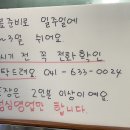 료준비로 일주일에
~3일 쉬어요
시기 전 꼭 전화확인
탁드려요 041-633-0024
장은 2인분 이상이에요.
심영업만 합니다.